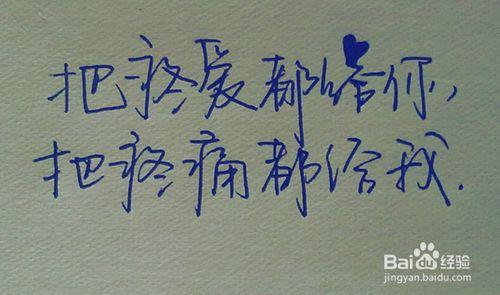 把疼爱都给你,
把疼痛都给我.
Baidu经验
jingyan.baidu.com